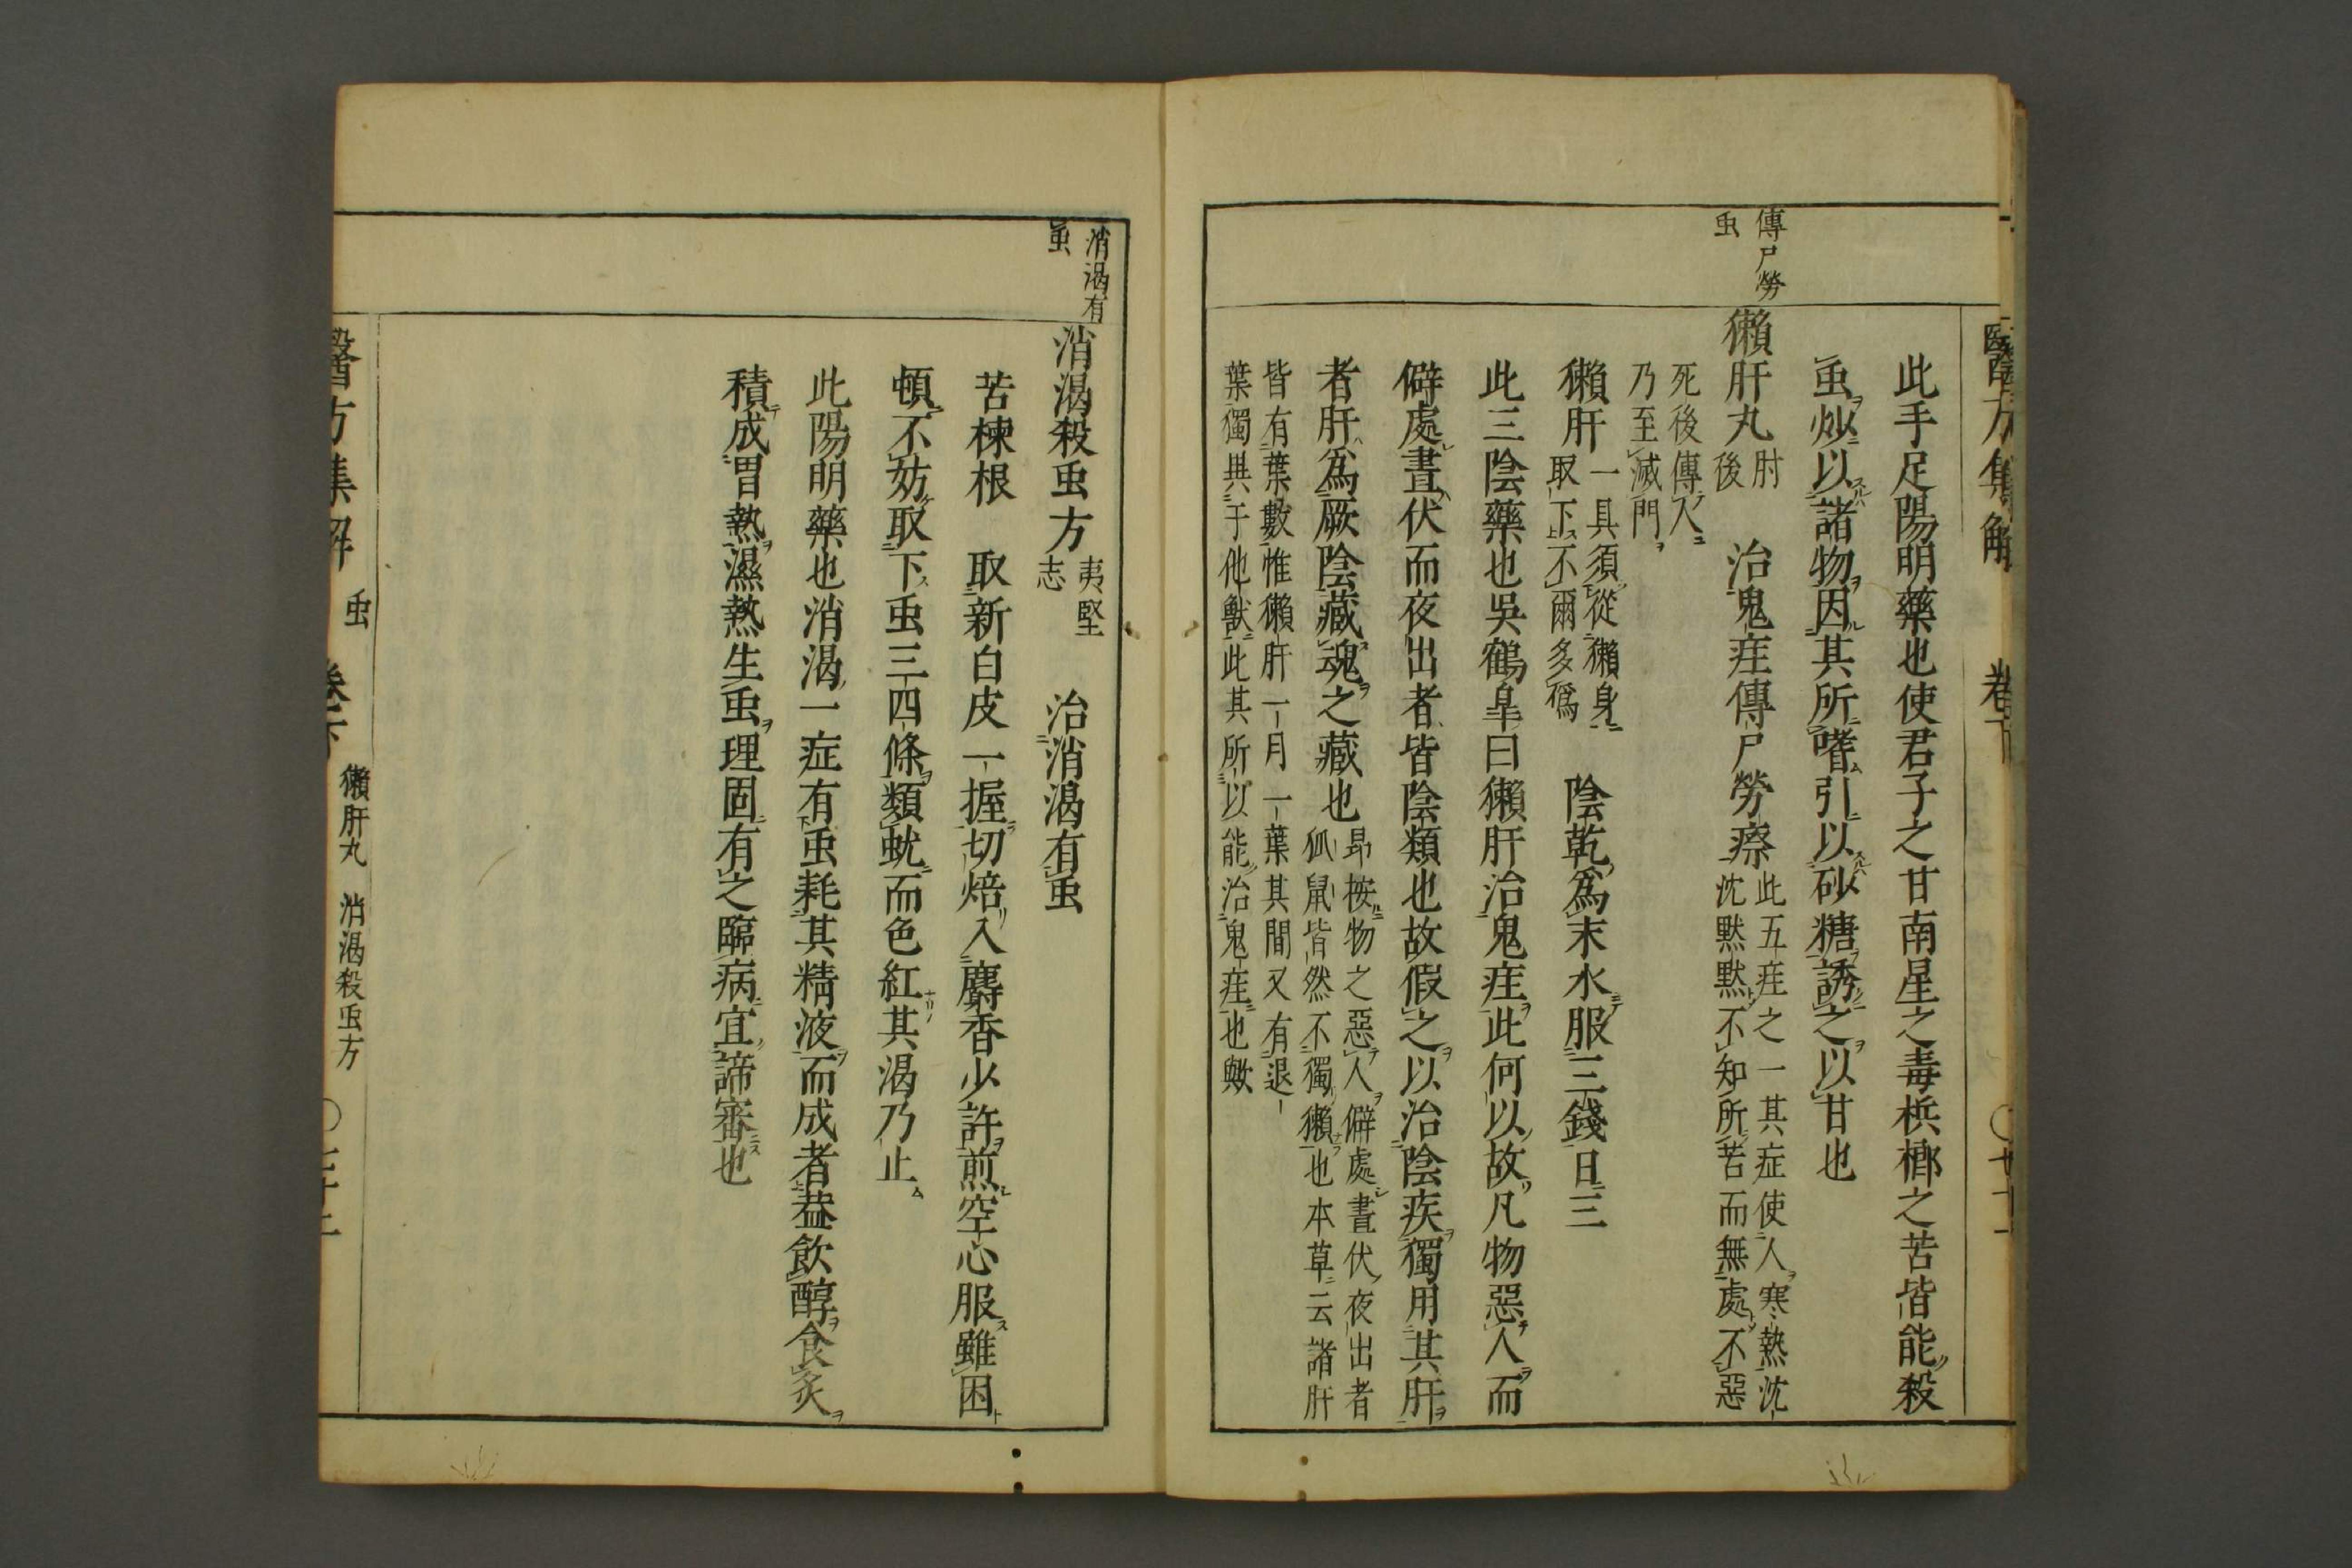 醫方集解 卷下
此手足陽明藥也使君子之甘南星之毒梹榔之苦皆能殺
虫炒以諸物因其所嗜引以砂糖誘之以甘也
傳尸勞
虫
獺肝丸
肘
後
治鬼疰傳尸勞瘵
此五疰之一其症使人寒熱沈
沈默默不知所苦而無處不惡
死後傳人
乃至滅門
獺肝
一具須從獺身
取下不爾多僞
陰乾爲末水服三錢日三
此三陰藥也吳鶴皐曰獺肝治鬼疰此何以故凡物惡人而
僻處晝伏而夜出者皆陰類也故假之以治陰疾獨用其肝
者肝爲厥陰藏魂之藏也
昂桉物之惡人僻處晝伏夜出者
狐鼠皆然不獨獺也本草云諸肝
皆有葉數惟獺肝一月一葉其間又有退
葉獨異于他獸此其所以能治鬼疰也歟
消渴有
虫
消渴殺虫方
夷堅
志
治消渴有虫
苦楝根 取新白皮一握切焙入麝香少許煎空心服雖困
頓不妨取下虫三四條類蚘而色紅其渴乃止
此陽明藥也消渴一症有虫耗其精液而成者葢飲醇食炙
積成胃熱濕熱生虫理固有之臨病宜諦審也
醫方集解 虫 卷下 獺肝丸 消渴殺虫方